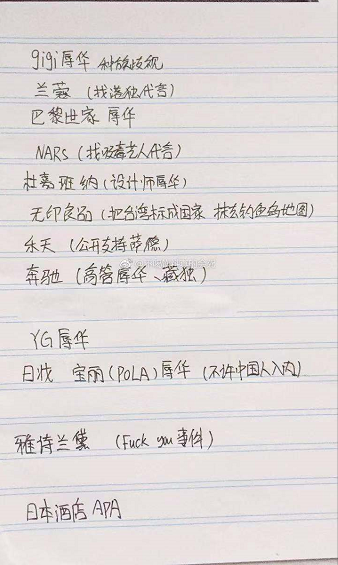 gigi辱华 种族歧视
兰蔻 (找港独代言)
巴黎世家 辱华
NARS (找吸毒艺人代言)
杜嘉班纳 (设计师辱华)
无印良品 (把台湾标成国家 抹去钓鱼岛地图)
乐天 (公开支持萨德)
奔驰 (高管辱华、藏独)
YG辱华
日妆 宝丽 (POLA) 辱华 (不许中国人入内)
雅诗兰黛 (Fuck you事件)
日本酒店 APA